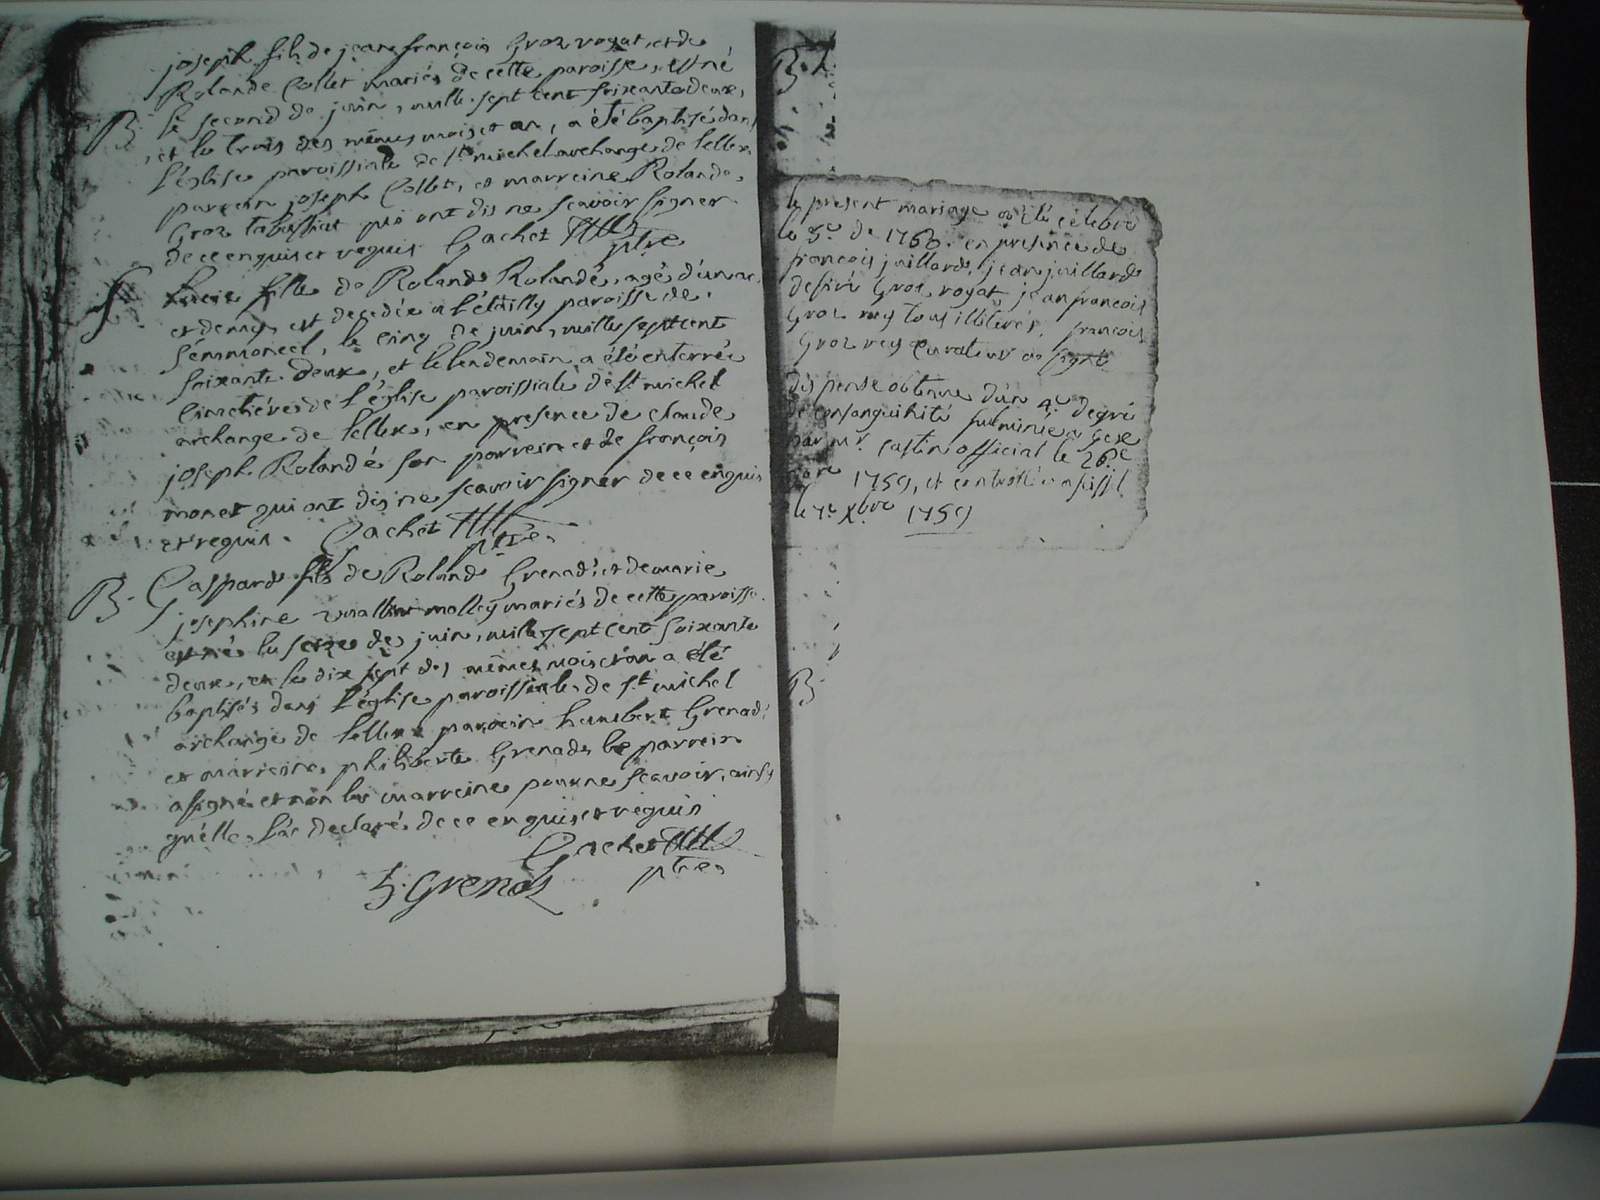 joseph fils de jean françois Groz royat, et de
Rolande Collet mariés de cette paroisse, est né
B. le second de juin, mille sept cent soixante deux,
et le trois des mêmes mois et an, a été baptisé dans
l'église paroissiale de st michel archange de lellex
parrein joseph Collet, et marreine Rolande
Groz qui ont dis ne scavoir signer
de ce enquis et requis Gachet
ptre
S. fille de Rolande Rolandé, agé d'un an
et demy, est decedée a l'étailly paroisse de
le cinq de juin, mille sept cent
soixante deux, et le lendemain a été enterrée
Cimethéres de l'église paroissiale de st michel
archange de lellex, en presence de claude
joseph Rolandé son parrein et de françois
monet qui ont dis ne scavoir signer de ce enquis
et requis. Gachet
ptre
B. Gaspard fils de Roland Grenad, et de marie
josephine mollet mariés de cette paroisse
est né le seize de juin, mille sept cent soixante
deux, et le dix sept des mêmes mois et an a été
baptisés dans l'église paroissiale de st michel
archange de lellex parrein humbert Grenad
et marreine philiberte Grenad, le parrein
a signé et non la marreine pour ne scavoir, ainsy
qu'elle l'a declaré de ce enquis et requis
Gachet
ptre
h. Grenad
B.
le present mariage a été célebré
le 3e de 1760. en presence de
francois juillard, jean juillard
desiré Groz royat, jean francois
Groz rey tous illiterés, francois
Groz rey Curateur a signé
dispense obtenue d'un 4e degré
de consanguinité fulminée a Gex
par mr. castin official le 26e
1759, et controllé
le 7e Xbre 1759
B.